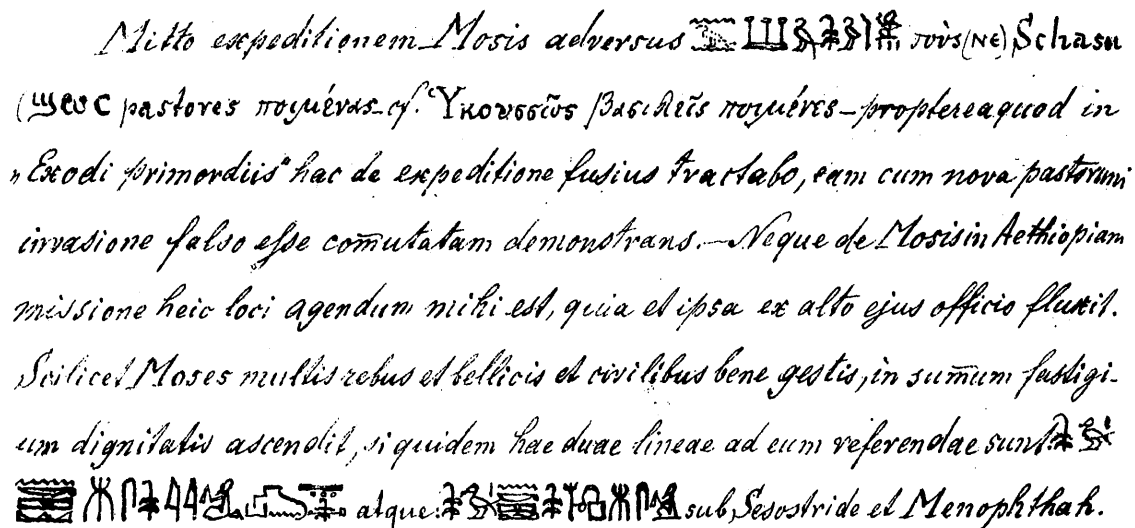 Mitto expeditionem Mosis adversus τοὺς (ⲚⲈ) Schasu
(ϣⲱⲥ pastores ποιμένας – cf. Ὑκουσσῶς βασιλεῖς ποιμένες – propterea quod in
„Exodi primordiis" hac de expeditione fusius tractabo, eam cum nova pastorum
invasione falso esse com̄utatam demonstrans. – Neque de Mosis in Aethiopiam
missione heic loci agendum mihi est, quia et ipsa ex alto ejus officio fluxit.
Scilicet Moses multis rebus et bellicis et civilibus bene gestis, in sum̄um fastigi-
um dignitatis ascendit, siquidem hae duae lineae ad eum referendae sunt:
atque: sub Sesostride et Menophthah.